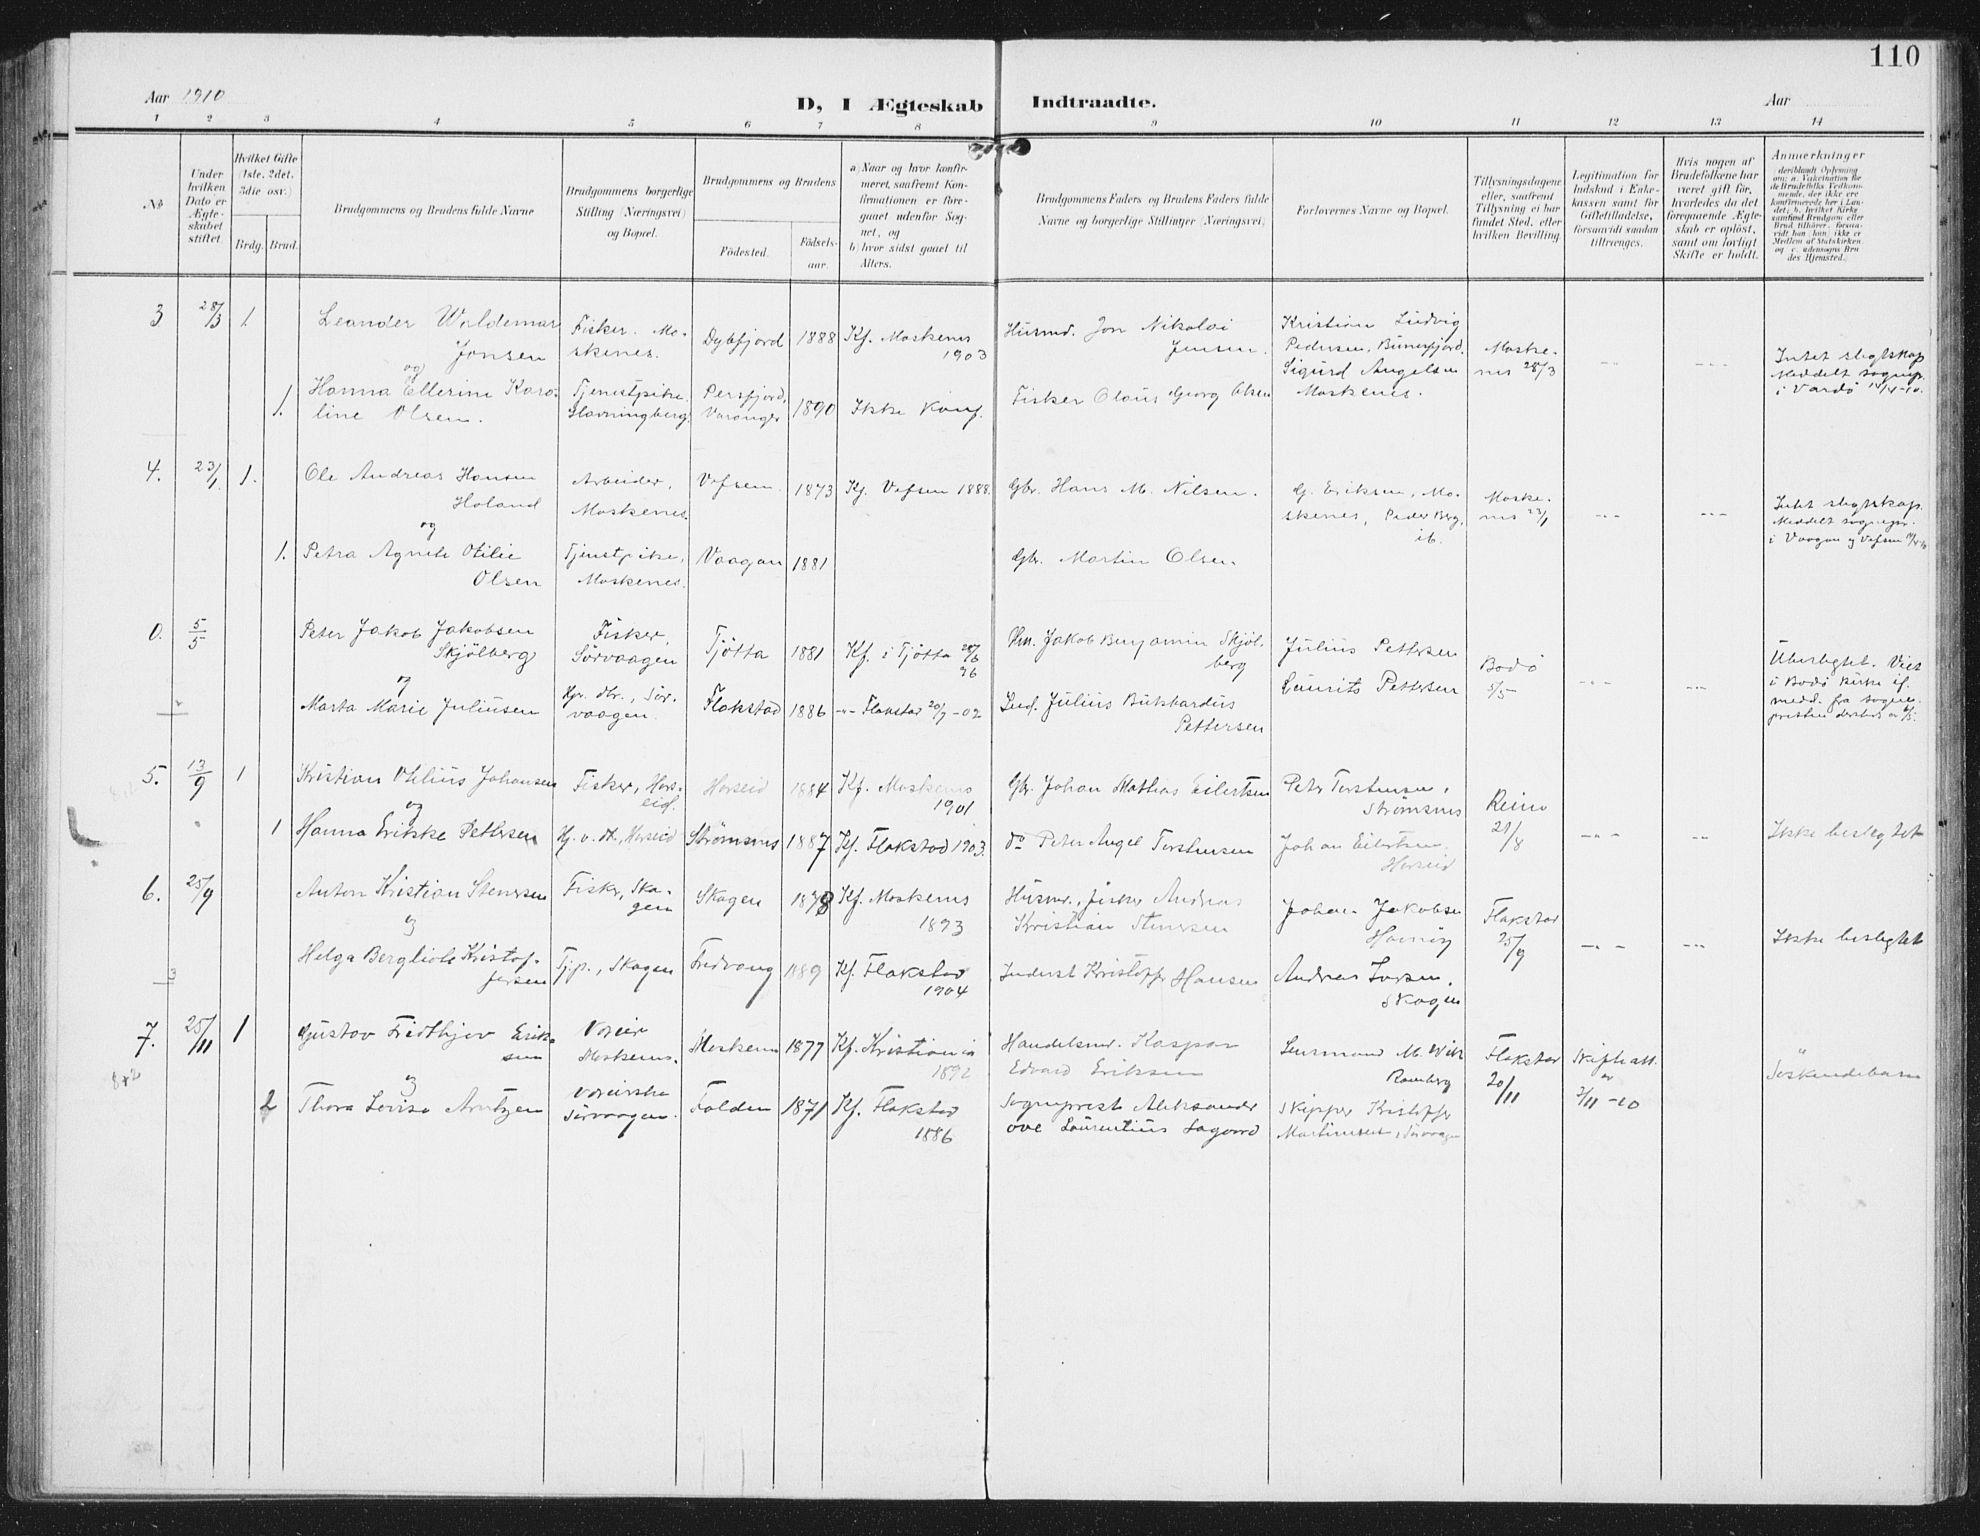 110
Aar 1910
D, I Ægteskab Indtraadte.
Aar
1 2 3 4 5 6 7 8 9 10 11 12 13 14
No
Under hvilken Dato er Ægteskabet stiftet.
Hvilket Gifte (1ste, 2det, 3die osv.)
Brdg. Brud.
Brudgommens og Brudens fulde Navne
Brudgommens borgerlige Stilling (Næringsvei) og Bopæl.
Brudgommens og Brudens
Fødested.
Fødsels-aar.
a) Naar og hvor konfirmeret, saafremt Konfirmationen er foregaaet udenfor Sognet, og
b) hvor sidst gaaet til Alters.
Brudgommens Faders og Brudens Faders fulde Navne og borgerlige Stillinger (Næringsvei)
Forlovernes Navne og Bopæl.
Tillysningsdagene eller, saafremt Tillysning ei har fundet Sted, efter hvilken Bevilling.
Legitimation for Indskud i Enkekassen samt for Giftetilladelse, forsaavidt saadan tiltrænges.
Hvis nogen af Brudefolkene har været gift før, hvorledes da det foregaaende Ægteskab er opløst, samt om lovligt Skifte er holdt.
Anmerkninger
3 28/3 1. Leander Waldemar Jensen
og
Fisker. Moskenes. Dybfjord 1888 Kf. Moskenes 1903
Husmd. Jon Nikolai Jensen.
Kristian Ludvig Pedersen, Bunesfjord.
Sigurd Angelsen Moskenes.
Moskenes 28/3 -"- -"-
Intet slegtskap
Meddelt sognepr. i Vardø 14/4-10.
1. Hanna Ellerine Karoline Olsen.
Tjenestpike. Havningberg. Persfjord, Varanger 1890 Ikke konf.
Fisker Olaus Georg Olsen
4. 23/1. 1. Ole Andreas Hansen Holand
og
Arbeider, Moskenes. Vefsen 1873 Kf. Vefsen 1888.
Gbr. Hans M. Nilsen.
G. Eriksen, Moskenes, Peder Berg, ib.
Moskenes 23/1 -"- -"-
Intet slegtskap.
Meddelt sognepr. i Vaagan og Vefsen
1. Petra Agnete Otilie Olsen
Tjenstpike, Moskenes. Vaagan 1881
Gbr. Martin Olsen.
0. 5/5 Peter Jakob Jakobsen Skjölberg
og
Fisker, Sörvaagen Tjötta 1881 Kf. i Tjötta 28/6 96
Jakob Benjamin Skjölberg
Julius Pettersen
Laurits Pettersen
Bodö 5/5 -"- -"-
Ubeslegtet. Viet i Bodö kirke if. medd. fra sognepresten dersteds av
2 Marta Marie Juliussen
Sörvaagen. Flakstad 1886 -"- Flakstad 20/7-02
Julius Burkhardus Pettersen
5. 13/9 1 Kristian Otilius Johansen
og
Fisker, Horseid. Horseid 1884 Kf. Moskenes 1901
Gbr. Johan Mathias Eilertsen
Peter Torstensen, Strømsnes
Reine 21/8 -"- -"-
Ikke beslegtet
1 Hanna Erikke Pettersen
Hj. v. dt., Horseid Strømsnes 1887 Kf. Flakstad 1903.
do Peter Angel Torstensen
Johan Eilertsen. Horseid
6. 25/9 Anton Kristian Stenersen
og
Fisker, Skagen Skagen 1878 Kf. Moskenes 1893
Husmr., fisker Andreas Kristian Stenersen
Johan Jakobsen Havnöy
Flakstad 25/9 -"- -"-
Ikke beslegtet
3 Helga Bergliote Kristoffersen
Tjp., Skagen Fredvang 1889 Kf. Flakstad 1904
Inderst Kristoffer Hansen
Andreas Larsen, Skagen
7. 25/11 1 Gustav Fridthjov Eriksen
og
Væreier Moskenes. Moskenes 1877 Kf. Kristiania 1892
Handelsmr. Kaspar Edvard Eriksen
Lensmand M. Wik Ramberg
Flakstad 20/11
Skifteatt. av 2/11-10
Söskendebarn
8+2
2 Thora Lovise Arntzen
Væreierske Sörvaagen. Folden 1871 Kf. Flakstad 1886
Sogneprest Aleksander Ove Laurentius Sagaard
Skipper Kristoffer Martinussen, Sörvaagen